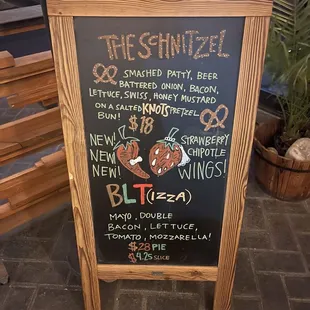 THE SCHNITZEL
SMASHED PATTY, BEER
BATTERED ONION, BACON,
LETTUCE, SWISS, HONEY MUSTARD
ON A SALTED KNOTSPRETZEL
BUN! $18
NEW! STRAWBERRY
NEW! CHIPOTLE
NEW! WINGS!
BLT(IZZA)
MAYO, DOUBLE
BACON, LETTUCE,
TOMATO, MOZZARELLA!
$28 PIE
$4.25 SLICE